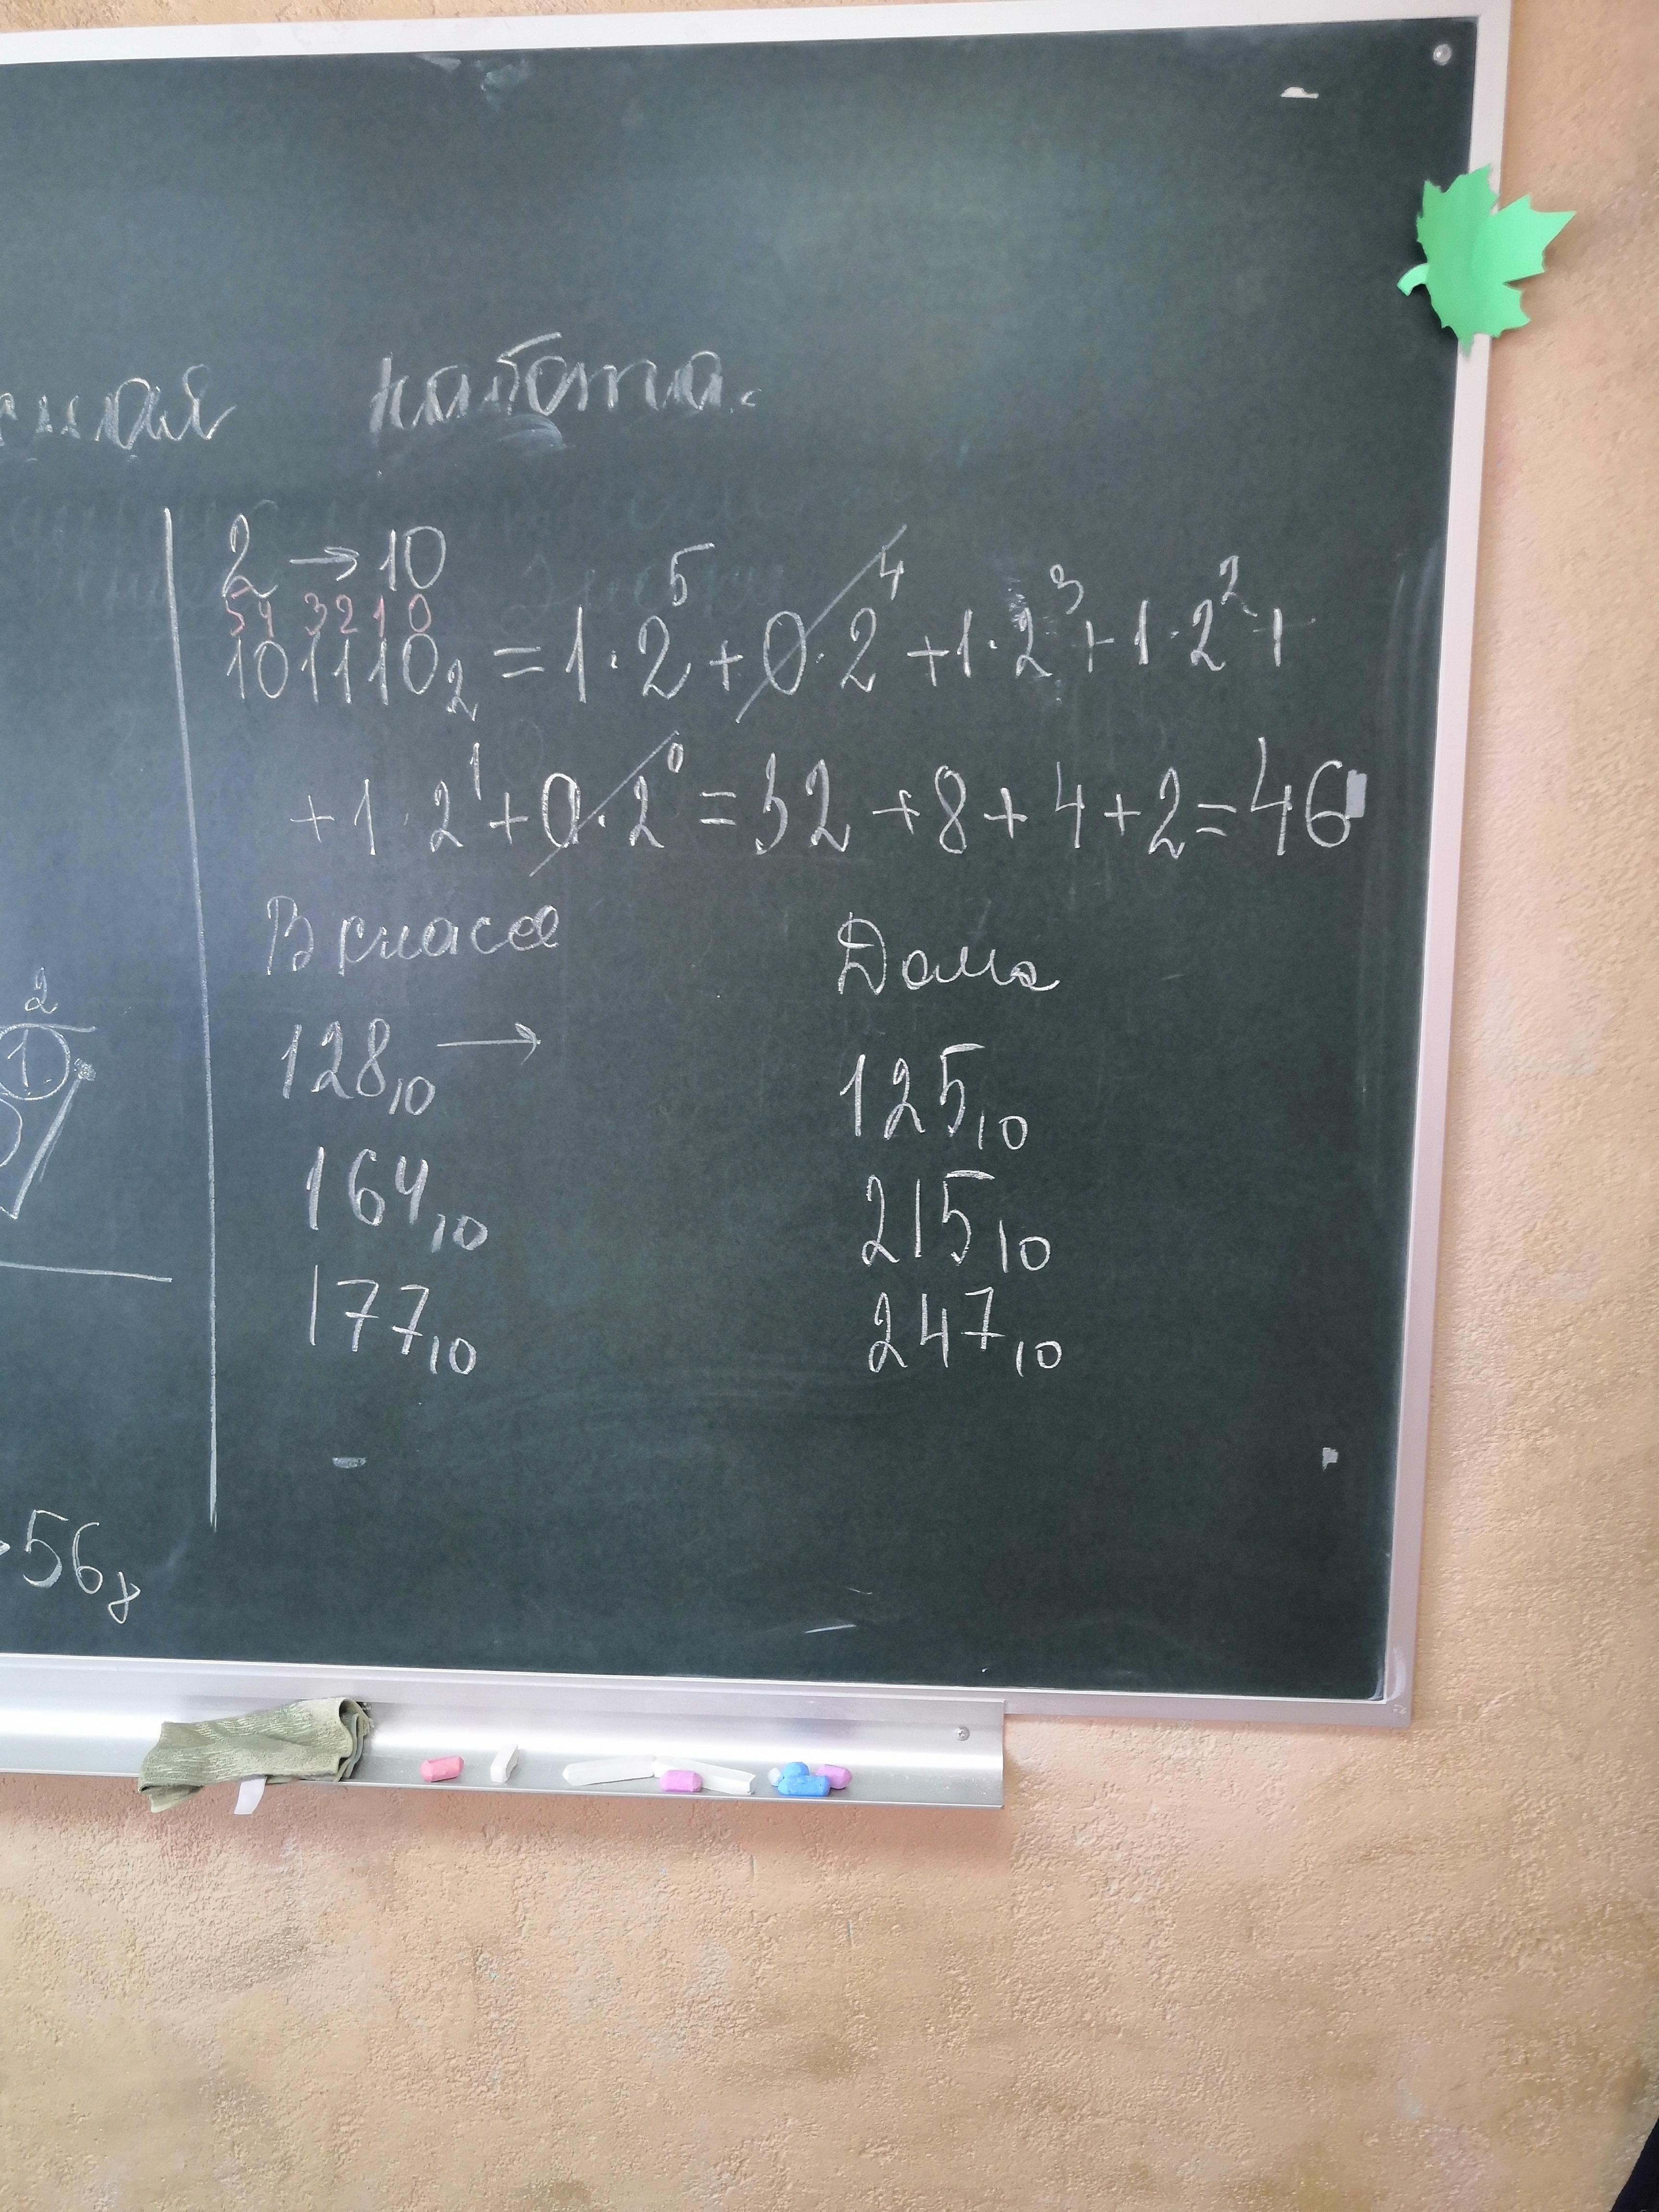 работа.
2 → 10
5 4 3 2 1 0
101110₂ = 1·2⁵ + 0·2⁴ + 1·2³ + 1·2² +
+ 1·2¹ + 0·2⁰ = 32 + 8 + 4 + 2 = 46
В классе
Дома
128₁₀ →
125₁₀
164₁₀
215₁₀
177₁₀
247₁₀
2
1
56₈